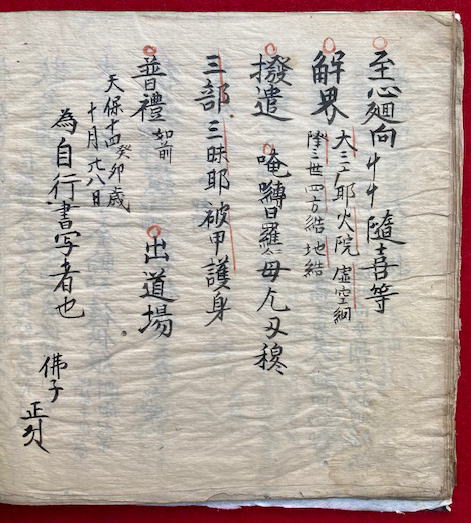 至心廻向隨喜等
解界
大三耶火院 虚空網
降三世四方結地結
撥遣 唵嚩日羅母乞叉穆
三部三昧耶被甲護身
普禮如前 出道場
天保十四癸卯歳
十月八日
為自行書写者也
佛子 正